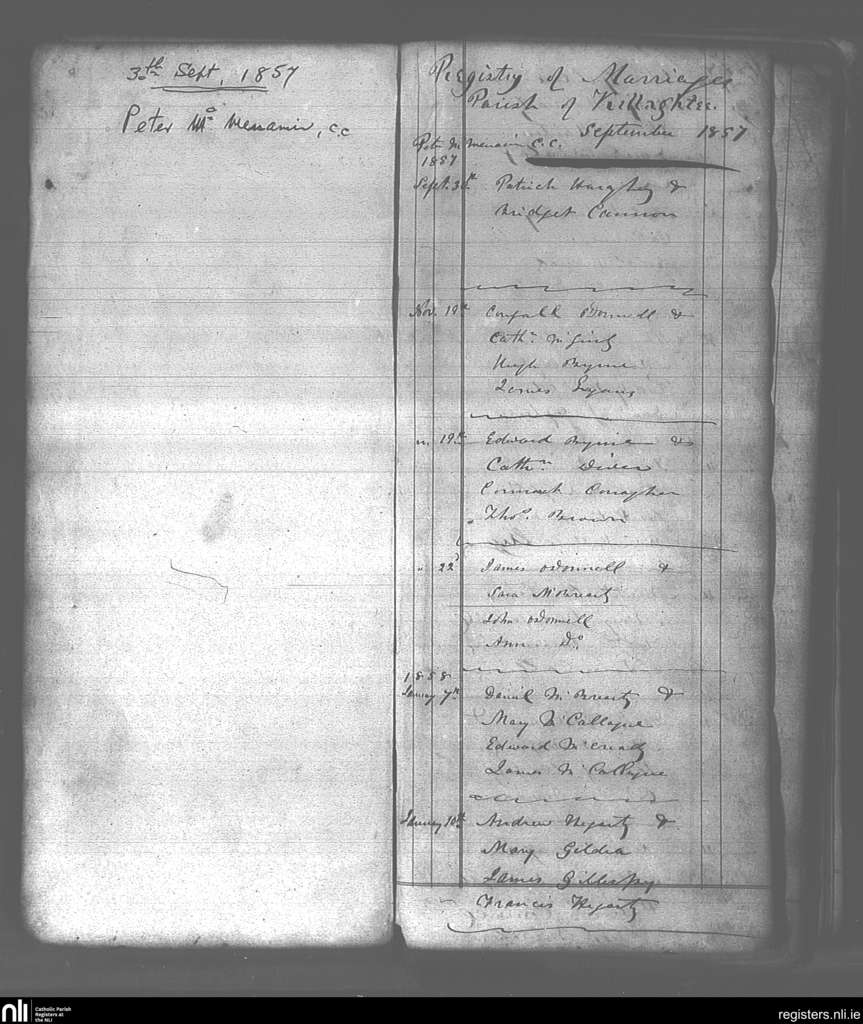 30th Sept, 1857
Peter Mc Menamin, C.C
Registry of Marriages
Parish of Killaghtee.
September 1857
Peter McMenamin C.C.
1857
Sept. 30th Patrick Haughey &
Bridget Cannon
Nov. 19th Conall O'Donnell &
Cathn. McGinty
Hugh Byrne
James
" 19th Edward Byrne &
Cathn.
Cormack Conaghan
Thos. Brown
" 22d James O'Donnell &
Sara McBrearty
John O'Donnell
Ann Do.
1858
January 7th Daniel McBrearty &
Mary McCallogue
Edward McCready
James McCallogue
January 10th Andrew Hegarty &
Mary Gildea
James Gillespy
Francis Hegarty
nli Catholic Parish
Registers at
the NLI
registers.nli.ie